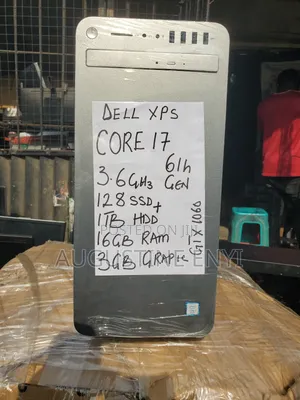 DELL XPS
CORE I7
6th
3.6GHz GEN
128SSD+
1TB HDD
16GB RAM
3GB GRAPHIC
GTX 1060
POSTED ON JIJI
AUGUSTINE ENYI